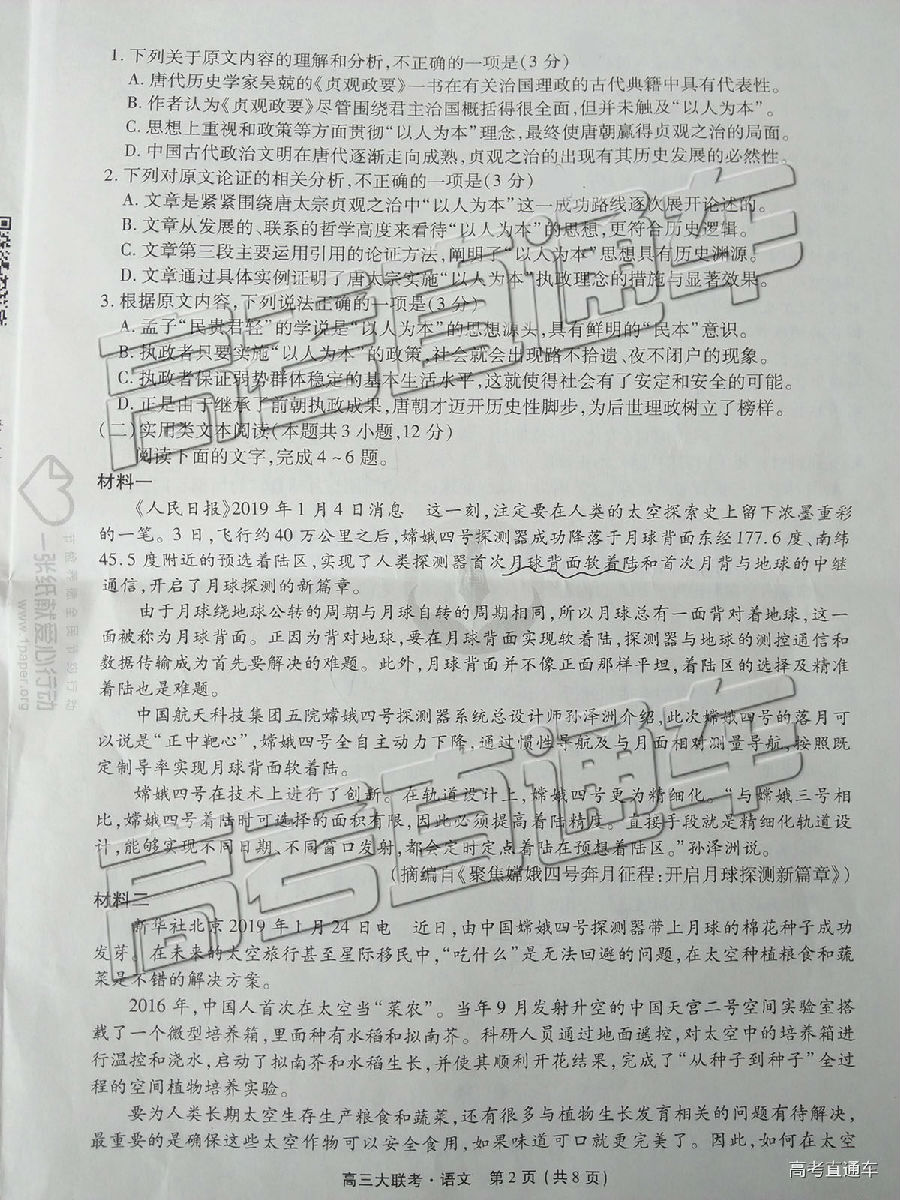 1. 下列关于原文内容的理解和分析,不正确的一项是(3 分)
A. 唐代历史学家吴兢的《贞观政要》一书在有关治国理政的古代典籍中具有代表性。
B. 作者认为《贞观政要》尽管围绕君主治国概括得很全面,但并未触及“以人为本”。
C. 思想上重视和政策等方面贯彻“以人为本”理念,最终使唐朝赢得贞观之治的局面。
D. 中国古代政治文明在唐代逐渐走向成熟,贞观之治的出现有其历史发展的必然性。
2. 下列对原文论证的相关分析,不正确的一项是(3 分)
A. 文章是紧紧围绕唐太宗贞观之治中“以人为本”这一成功路线逐次展开论述的。
B. 文章从发展的、联系的哲学高度来看待“以人为本”的思想,更符合历史逻辑。
C. 文章第三段主要运用引用的论证方法,阐明了“以人为本”思想具有历史渊源。
D. 文章通过具体实例证明了唐太宗实施“以人为本”执政理念的措施与显著效果。
3. 根据原文内容,下列说法正确的一项是(3 分)
A. 孟子“民贵君轻”的学说是“以人为本”的思想源头,具有鲜明的“民本”意识。
B. 执政者只要实施“以人为本”的政策,社会就会出现路不拾遗、夜不闭户的现象。
C. 执政者保证弱势群体稳定的基本生活水平,这就使得社会有了安定和安全的可能。
D. 正是由于继承了前朝执政成果,唐朝才迈开历史性脚步,为后世理政树立了榜样。
(二)实用类文本阅读(本题共 3 小题,12 分)
阅读下面的文字,完成 4~6 题。
材料一
《人民日报》2019 年 1 月 4 日消息 这一刻,注定要在人类的太空探索史上留下浓墨重彩
的一笔。3 日,飞行约 40 万公里之后,嫦娥四号探测器成功降落于月球背面东经 177.6 度、南纬
45.5 度附近的预选着陆区,实现了人类探测器首次月球背面软着陆和首次月背与地球的中继
通信,开启了月球探测的新篇章。
由于月球绕地球公转的周期与月球自转的周期相同,所以月球总有一面背对着地球,这一
面被称为月球背面。正因为背对地球,要在月球背面实现软着陆,探测器与地球的测控通信和
数据传输成为首先要解决的难题。此外,月球背面并不像正面那样平坦,着陆区的选择及精准
着陆也是难题。
中国航天科技集团五院嫦娥四号探测器系统总设计师孙泽洲介绍,此次嫦娥四号的落月可
以说是“正中靶心”,嫦娥四号全自主动力下降,通过惯性导航及与月面相对测量导航,按照既
定制导率实现月球背面软着陆。
嫦娥四号在技术上进行了创新。在轨道设计上,嫦娥四号更为精细化。“与嫦娥三号相
比,嫦娥四号着陆时可选择的面积有限,因此必须提高着陆精度。直接手段就是精细化轨道设
计,能够实现不同日期、不同窗口发射,都会定时定点着陆在预想着陆区。”孙泽洲说。
(摘编自《聚焦嫦娥四号奔月征程:开启月球探测新篇章》)
材料二
新华社北京 2019 年 1 月 24 日电 近日,由中国嫦娥四号探测器带上月球的棉花种子成功
发芽。在未来的太空旅行甚至星际移民中,“吃什么”是无法回避的问题,在太空种植粮食和蔬
菜是不错的解决方案。
2016 年,中国人首次在太空当“菜农”。当年 9 月发射升空的中国天宫二号空间实验室搭
载了一个微型培养箱,里面种有水稻和拟南芥。科研人员通过地面遥控,对太空中的培养箱进
行温控和浇水,启动了拟南芥和水稻生长,并使其顺利开花结果,完成了“从种子到种子”全过
程的空间植物培养实验。
要为人类长期太空生存生产粮食和蔬菜,还有很多与植物生长发育相关的问题有待解决,
最重要的是确保这些太空作物可以安全食用,如果味道可口就更完美了。因此,如何在太空
高三大联考·语文 第 2 页(共 8 页)
高考直通车
高考直通车
高考直通车
一张纸献爱心行动
www.1paper.org